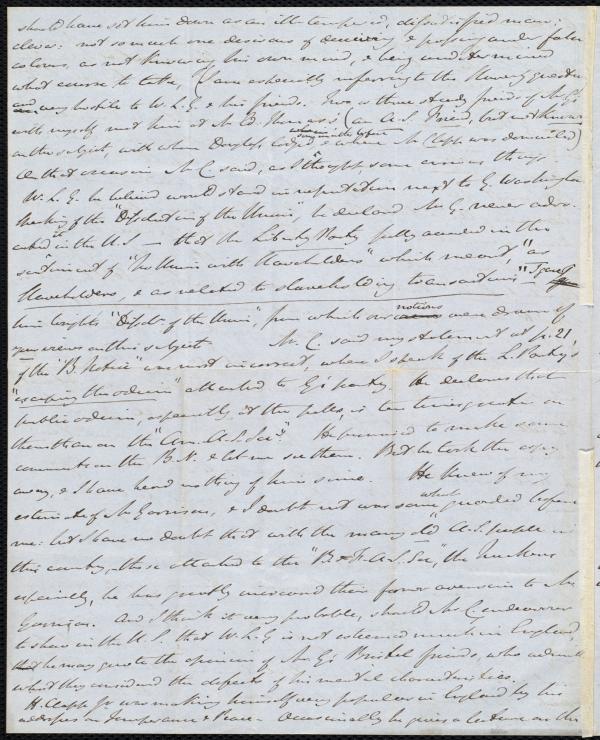 should have set him down as an ill-tempered, dissatisfied man;
clever: not so much one desirous of deceiving & passing under false
colours, as not knowing his own mind, & being undetermined
what course to take, (I am especially referring to the slavery question
and very hostile to W. L. G. & his friends. Two or three steady friends of Mr G's
with myself met him at Mr (an A. S. Friend, but not
on the subject, with whom Douglass lodged & where Mr Clapp was domiciled)
On that occasion Mr C. said, as I thought, some curious things
W. L. G. he believed would stand in reputation next to G. Washington
Speaking of the "Dissolution of the Union", he declared Mr G. never advo-
cated it in the U.S. — that the Liberty Party fully agreed in the
sentiment of "No Union with Slaveholders" which meant, "as
slaveholders, & as related to slaveholding transactions." I gave
him Wright's "Dissolt of the Union", from which our notions were drawn of
views on this subject Mr C. said my statement at p. 21,
of the "B. Notice" was most incorrect, where I speak of the L. Party's
"escaping the odium" attached to G's party. He declares that
public odium, especially at the polls, is far greater on
them than on the "Am. A. S. Socy". He promised to make some
comments on the B. N. & let me see them. But he took the copy
away, & I have heard nothing of him since. He knew of my
estimate of Mr Garrison, & I doubt not was somewhat guarded before
me: but I have no doubt that with the many old A. S. people in
this country, those attached to the "B & F. A. S. Soc", the Quakers
especially, he has greatly increased their former aversion to Mr
Garrison. And I think it very probable, should Mr C. endeavour
to shew in the U. S. that W. L. G. is not esteemed much in England
that he may quote the opinion of Mr G's Bristol friends, who admit
what they consider the defects of his mental characteristics.
H. Clapp Jr. was making himself very popular in England by his
addresses on Temperance & Peace. Occasionally he gives a lecture on the